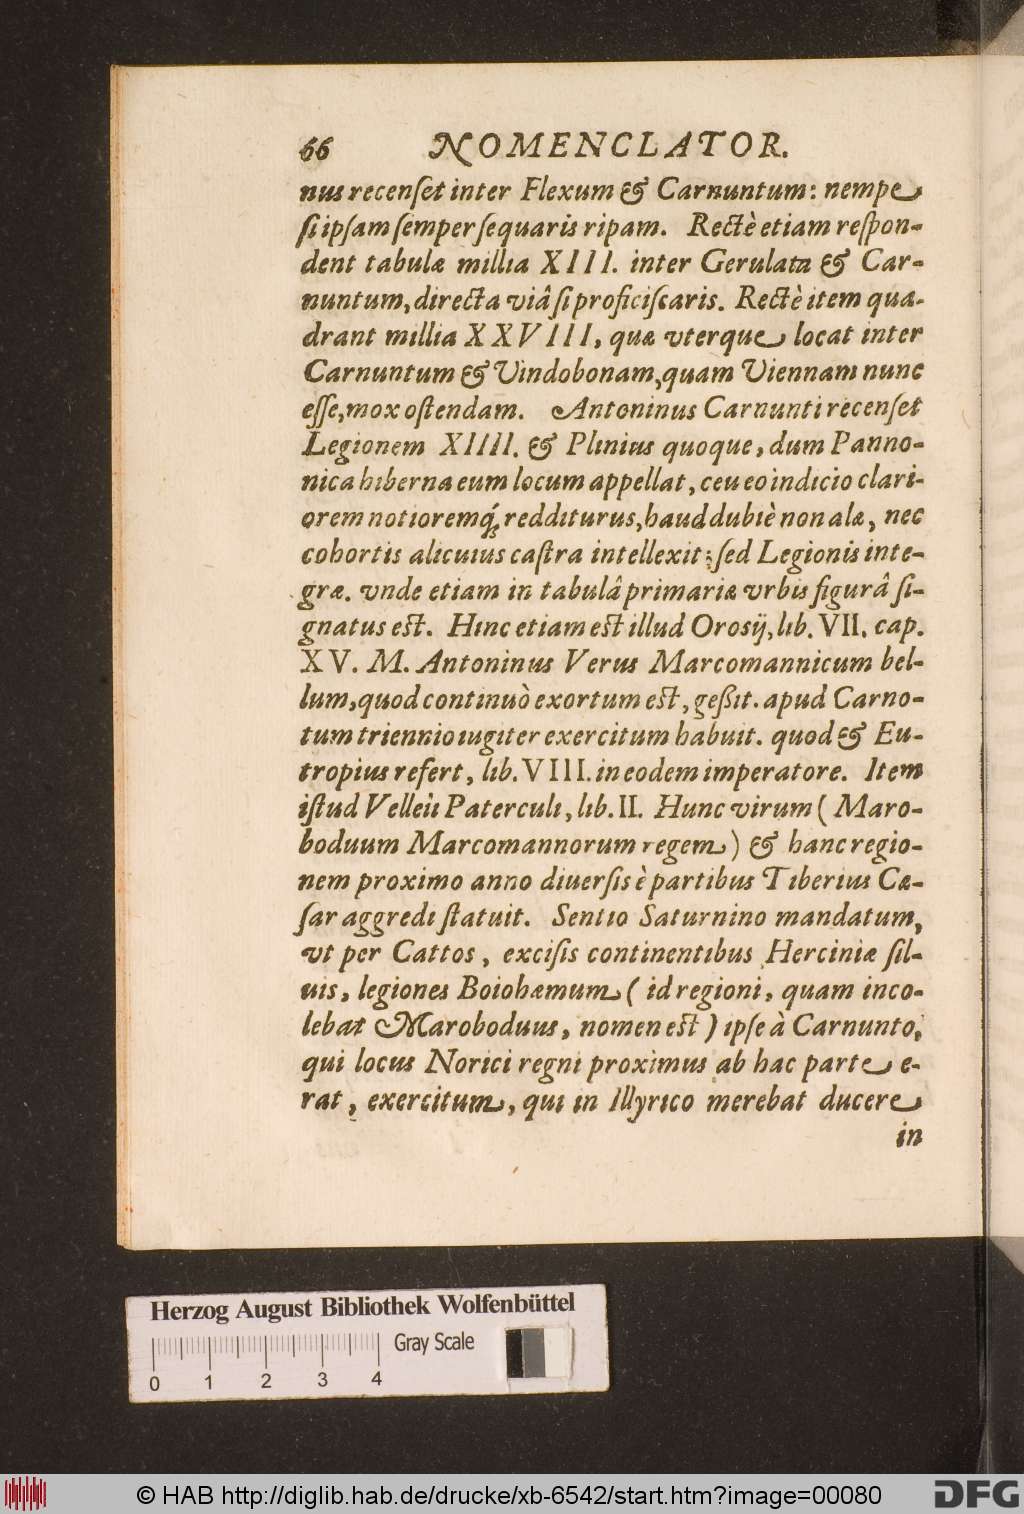 66 NOMENCLATOR.
nus recenſet inter Flexum & Carnuntum: nempe
ſi ipſam ſemper ſequaris ripam. Rectè etiam reſpon-
dent tabulæ millia XIII. inter Gerulata & Car-
nuntum, directa viâ ſi proficiſcaris. Rectè item qua-
drant millia XXVIII, quæ vterque locat inter
Carnuntum & Vindobonam, quam Viennam nunc
eſſe, mox oſtendam. Antoninus Carnunti recenſet
Legionem XIIII. & Plinius quoque, dum Panno-
nica hiberna eum locum appellat, ceu eo indicio clari-
orem notioremq́; redditurus, haud dubiè non alæ, nec
cohortis alicuius caſtra intellexit; ſed Legionis inte-
græ. vnde etiam in tabulâ primariæ vrbis figurâ ſi-
gnatus eſt. Hinc etiam eſt illud Orosij, lib. VII. cap.
XV. M. Antoninus Verus Marcomannicum bel-
lum, quod continuò exortum eſt, geßit. apud Carno-
tum triennio iugiter exercitum habuit. quod & Eu-
tropius refert, lib. VIII. in eodem imperatore. Item
iſtud Velleii Paterculi, lib. II. Hunc virum ( Maro-
boduum Marcomannorum regem ) & hanc regio-
nem proximo anno diuerſis è partibus Tiberius Cæ-
ſar aggredi ſtatuit. Sentio Saturnino mandatum,
vt per Cattos, exciſis continentibus Herciniæ ſil-
uis, legiones Boiohæmum ( id regioni, quam inco-
lebat Maroboduus, nomen eſt ) ipſe à Carnunto,
qui locus Norici regni proximus ab hac parte e-
rat, exercitum, qui in Illyrico merebat ducere
in
Herzog August Bibliothek Wolfenbüttel
Gray Scale
0 1 2 3 4
© HAB http://diglib.hab.de/drucke/xb-6542/start.htm?image=00080
DFG